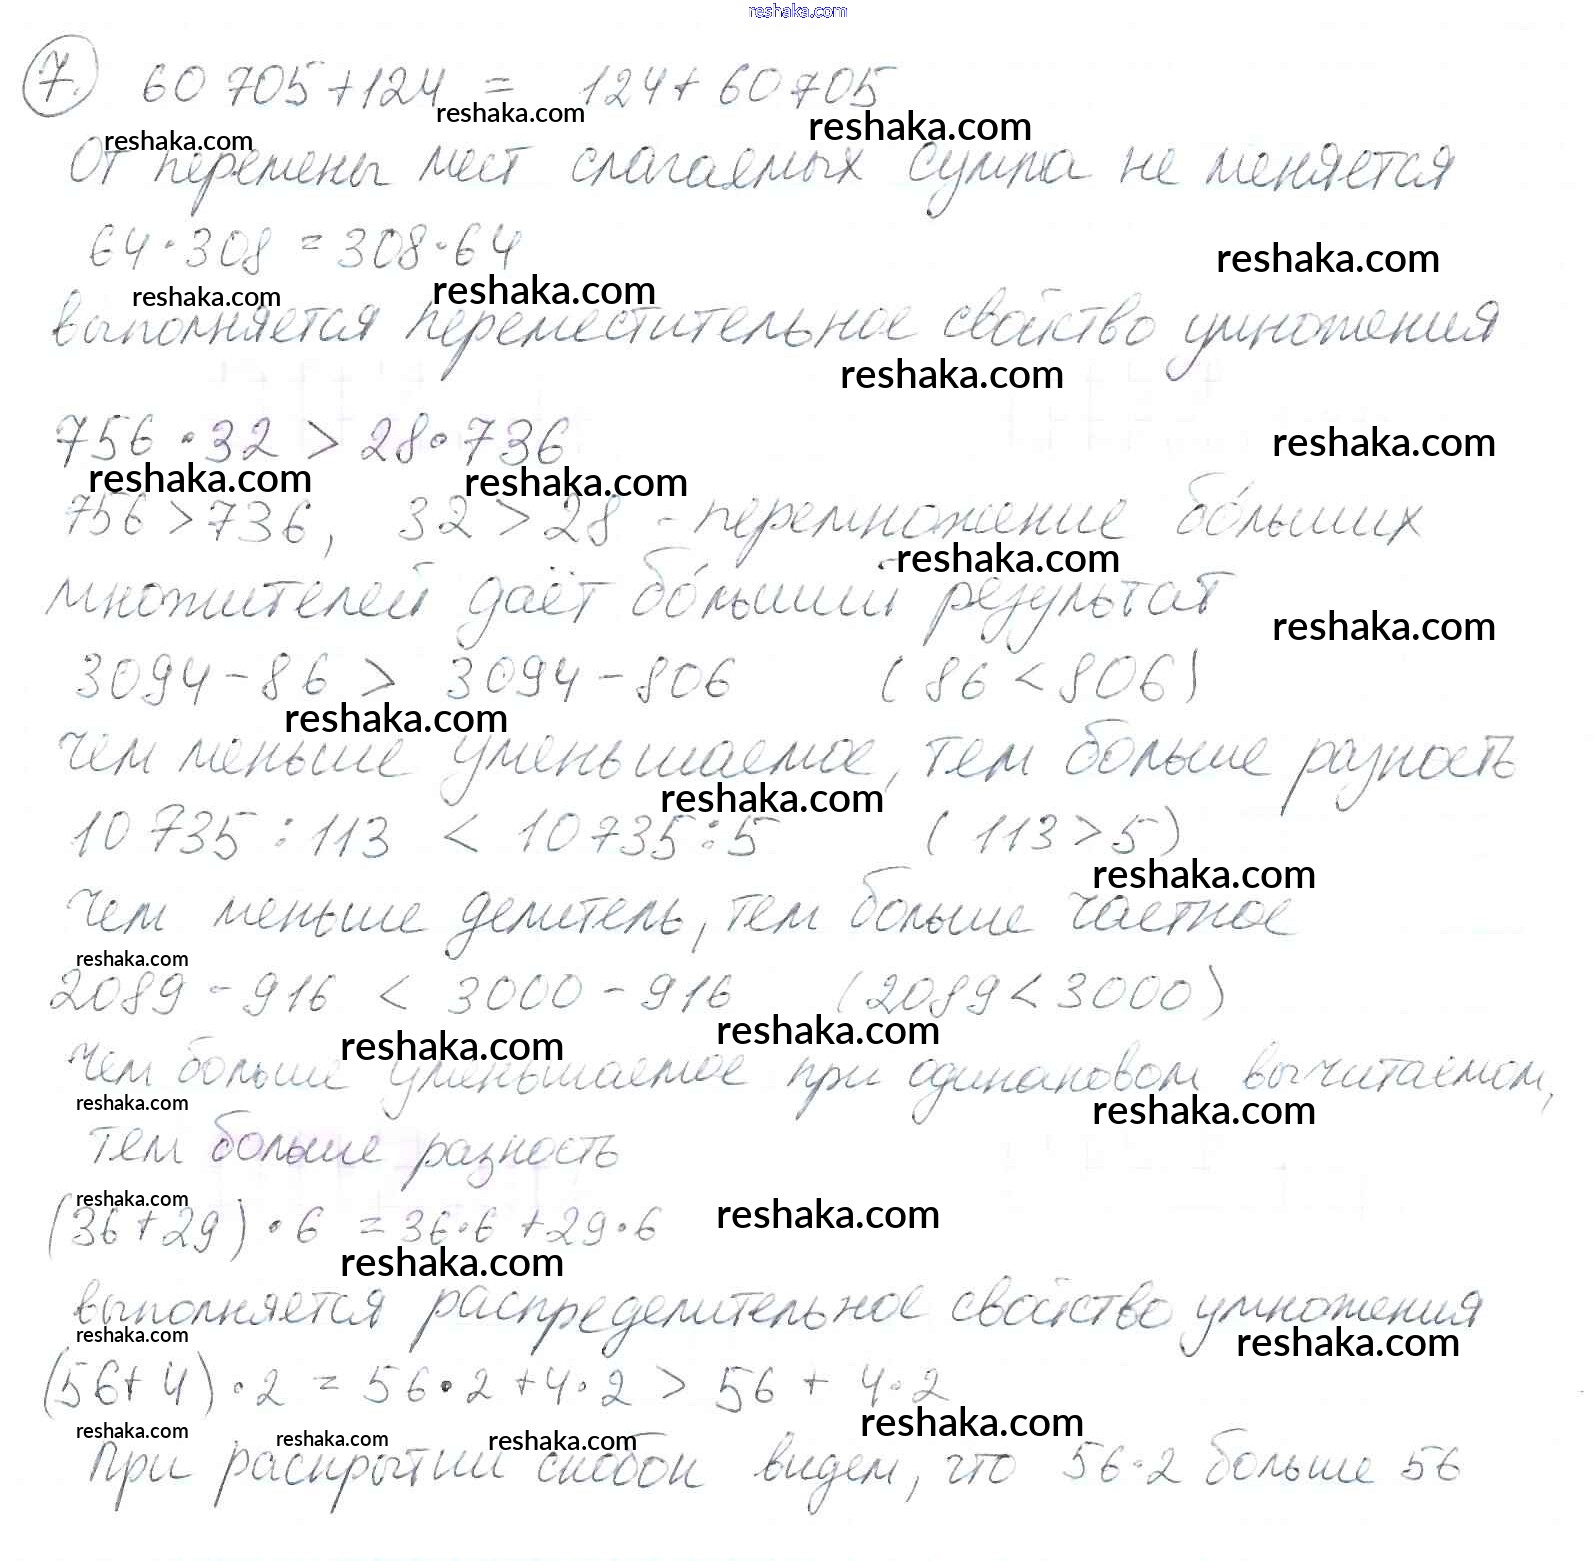 reshaka.com
7. 60 705 + 124 = 124 + 60 705
reshaka.com
reshaka.com reshaka.com
От перемены мест слагаемых сумма не меняется
64 · 308 = 308 · 64
reshaka.com
reshaka.com reshaka.com
выполняется переместительное свойство умножения
reshaka.com
756 · 32 > 28 · 736
reshaka.com
reshaka.com reshaka.com
756 > 736, 32 > 28 - перемножение бо́льших
reshaka.com
множителей даёт бо́льший результат
reshaka.com
3094 - 86 > 3094 - 806 (86 < 806)
reshaka.com
чем меньше уменьшаемое, тем больше разность
reshaka.com
10 735 : 113 < 10 735 : 5 (113 > 5)
reshaka.com
Чем меньше делитель, тем больше частное
reshaka.com
2089 - 916 < 3000 - 916 (2089 < 3000)
reshaka.com reshaka.com
Чем больше уменьшаемое при одинаковом вычитаемом,
reshaka.com reshaka.com
тем больше разность
reshaka.com
(36 + 29) · 6 = 36 · 6 + 29 · 6
reshaka.com
reshaka.com
выполняется распределительное свойство умножения
reshaka.com reshaka.com
(56 + 4) · 2 = 56 · 2 + 4 · 2 > 56 + 4 · 2
reshaka.com reshaka.com reshaka.com reshaka.com
При раскрытии скобок видем, что 56 · 2 больше 56